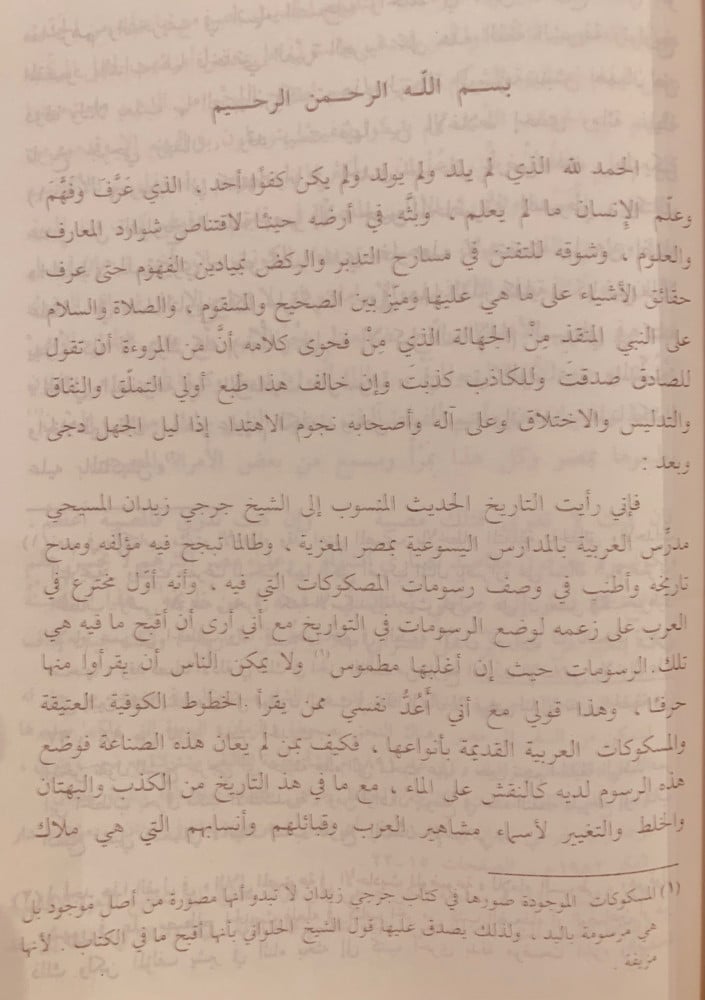 بســم اللّـه الرحــمن الرحــيم
الحمد لله الذي لم يلد ولم يولد ولم يكن كفوًا أحد ، الذي عَرَّفَ وفَهَّمَ
وعلّم الإنسان ما لم يعلم ، وبثَّه في أرضه حيثًا لاقتناص شوارد المعارف
والعلوم ، وشوقه للتفنن في مسارح التدبر والركض بميادين الفهوم حتى عرف
حقائق الأشياء على ما هي عليها وميّز بين الصحيح والمسقوم ، والصلاة والسلام
على النبي المنقذ مِنْ الجهالة الذي مِنْ فحوى كلامه أنَّ مِن المروءة أن تقول
للصادق صدقتَ وللكاذب كذبتَ وإن خالف هذا طبع أولي التملّق والنفاق
والتدليس والاختلاق وعلى آله وأصحابه نجوم الاهتدا إذا ليل الجهل دجى
وبعد :
فإني رأيت التاريخ الحديث المنسوب إلى الشيخ جرجي زيدان المسيحي
مدرِّس العربية بالمدارس اليسوعية بمصر المعزية ، وطالما تبجح فيه مؤلفه ومدح
تاريخه وأطنب في وصف رسومات المصكوكات التي فيه ، وأنه أوّل مخترع في
العرب على زعمه لوضع الرسومات في التواريخ مع أني أرى أن أقبح ما فيه هي
تلك الرسومات حيث إن أغلبها مطموس(١) ولا يمكن الناس أن يقرأوا منها
حرفًا ، وهذا قولي مع أني أَعُدُّ نفسي ممن يقرأ الخطوط الكوفية العتيقة
والمسكوكات العربية القديمة بأنواعها ، فكيف بمن لم يعان هذه الصناعة فوضع
هذه الرسوم لديه كالنقش على الماء ، مع ما في هذ التاريخ من الكذب والبهتان
والخلط والتغيير لأسماء مشاهير العرب وقبائلهم وأنسابهم التي هي ملاك
(١) المسكوكات الموجودة صورها في كتاب جرجي زيدان لا تبدو أنها مصورة من أصل موجود بل
هي مرسومة باليد ، ولذلك يصدق عليها قول الشيخ الحلواني بأنها أقبح ما في الكتاب . لأنها
مزيفة .